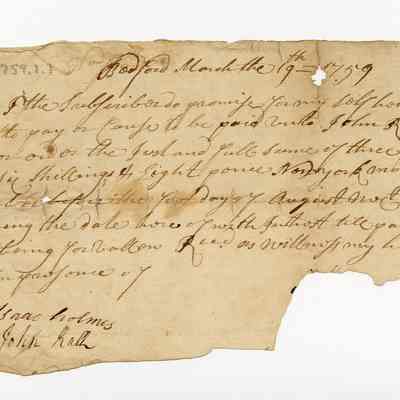 1759.1.1
Bedford March the 19th = 1759
I the Subscriber do promise for my self
to pay or Cause to be paid unto John
or the Just and full sume of three
Six Shillings & Eight pence Newyork
the first day of August
ing the date here of with Intrest till
being for Vallue Reced as Wittness my
In presence of
Isaac Holmes
John